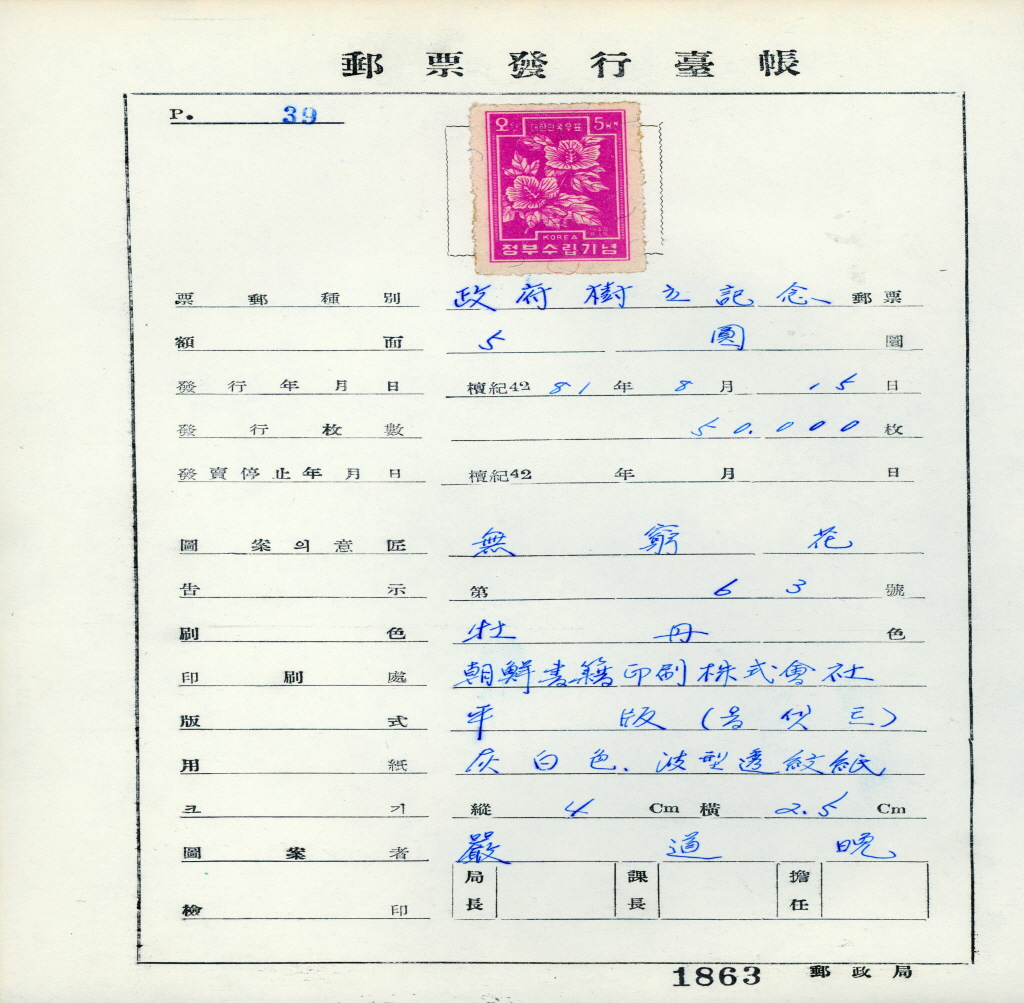 郵票發行臺帳
P. 39
오원 대한민국우표 5WN
1948 8.15
KOREA
정부수립기념
票郵種別 政府樹立記念 郵票
額面 5 圓 圜
發行年月日 檀紀42 81 年 8 月 15 日
發行枚數 50.000 枚
發賣停止年月日 檀紀42 年 月 日
圖案의意匠 無窮花
告示 第 63 號
刷色 牡丹 色
印刷處 朝鮮書籍印刷株式會社
版式 平版(옵셋트)
用紙 灰白色. 波型透紋紙
크기 縱 4 Cm 橫 2.5 Cm
圖案者 嚴道晩
檢印 局長 課長 擔任
1863 郵政局